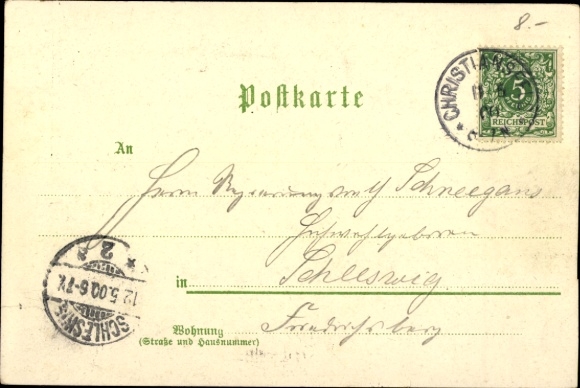 8.-
CHRISTIANSF
5
REICHSPOST
Postkarte
An
Herrn Regierungsrath Schneegans
Hochwohlgeboren
in Schleswig
Friedrichsberg
Wohnung
(Straße und Hausnummer)
SCHLESWIG
12.5.00.6-7N.
* 2